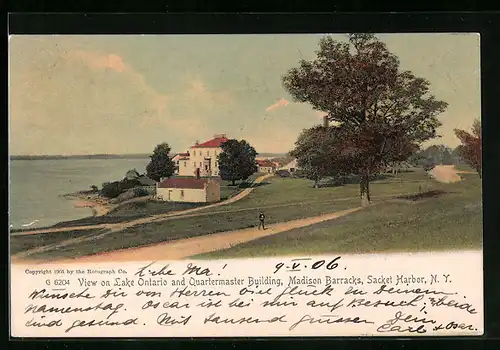 Copyright 1905 by the Rotograph Co.
G 6204 View on Lake Ontario and Quartermaster Building, Madison Barracks, Sacket Harbor, N. Y.
L'he Ma! 9-V-06
Wünsche Dir von Herren viel glück zu Deinem
namenstag. Oscar ist bei mir auf Besuch, beide
sind gesund. Mit tausend grüssen Dein
Carl & Oscar.